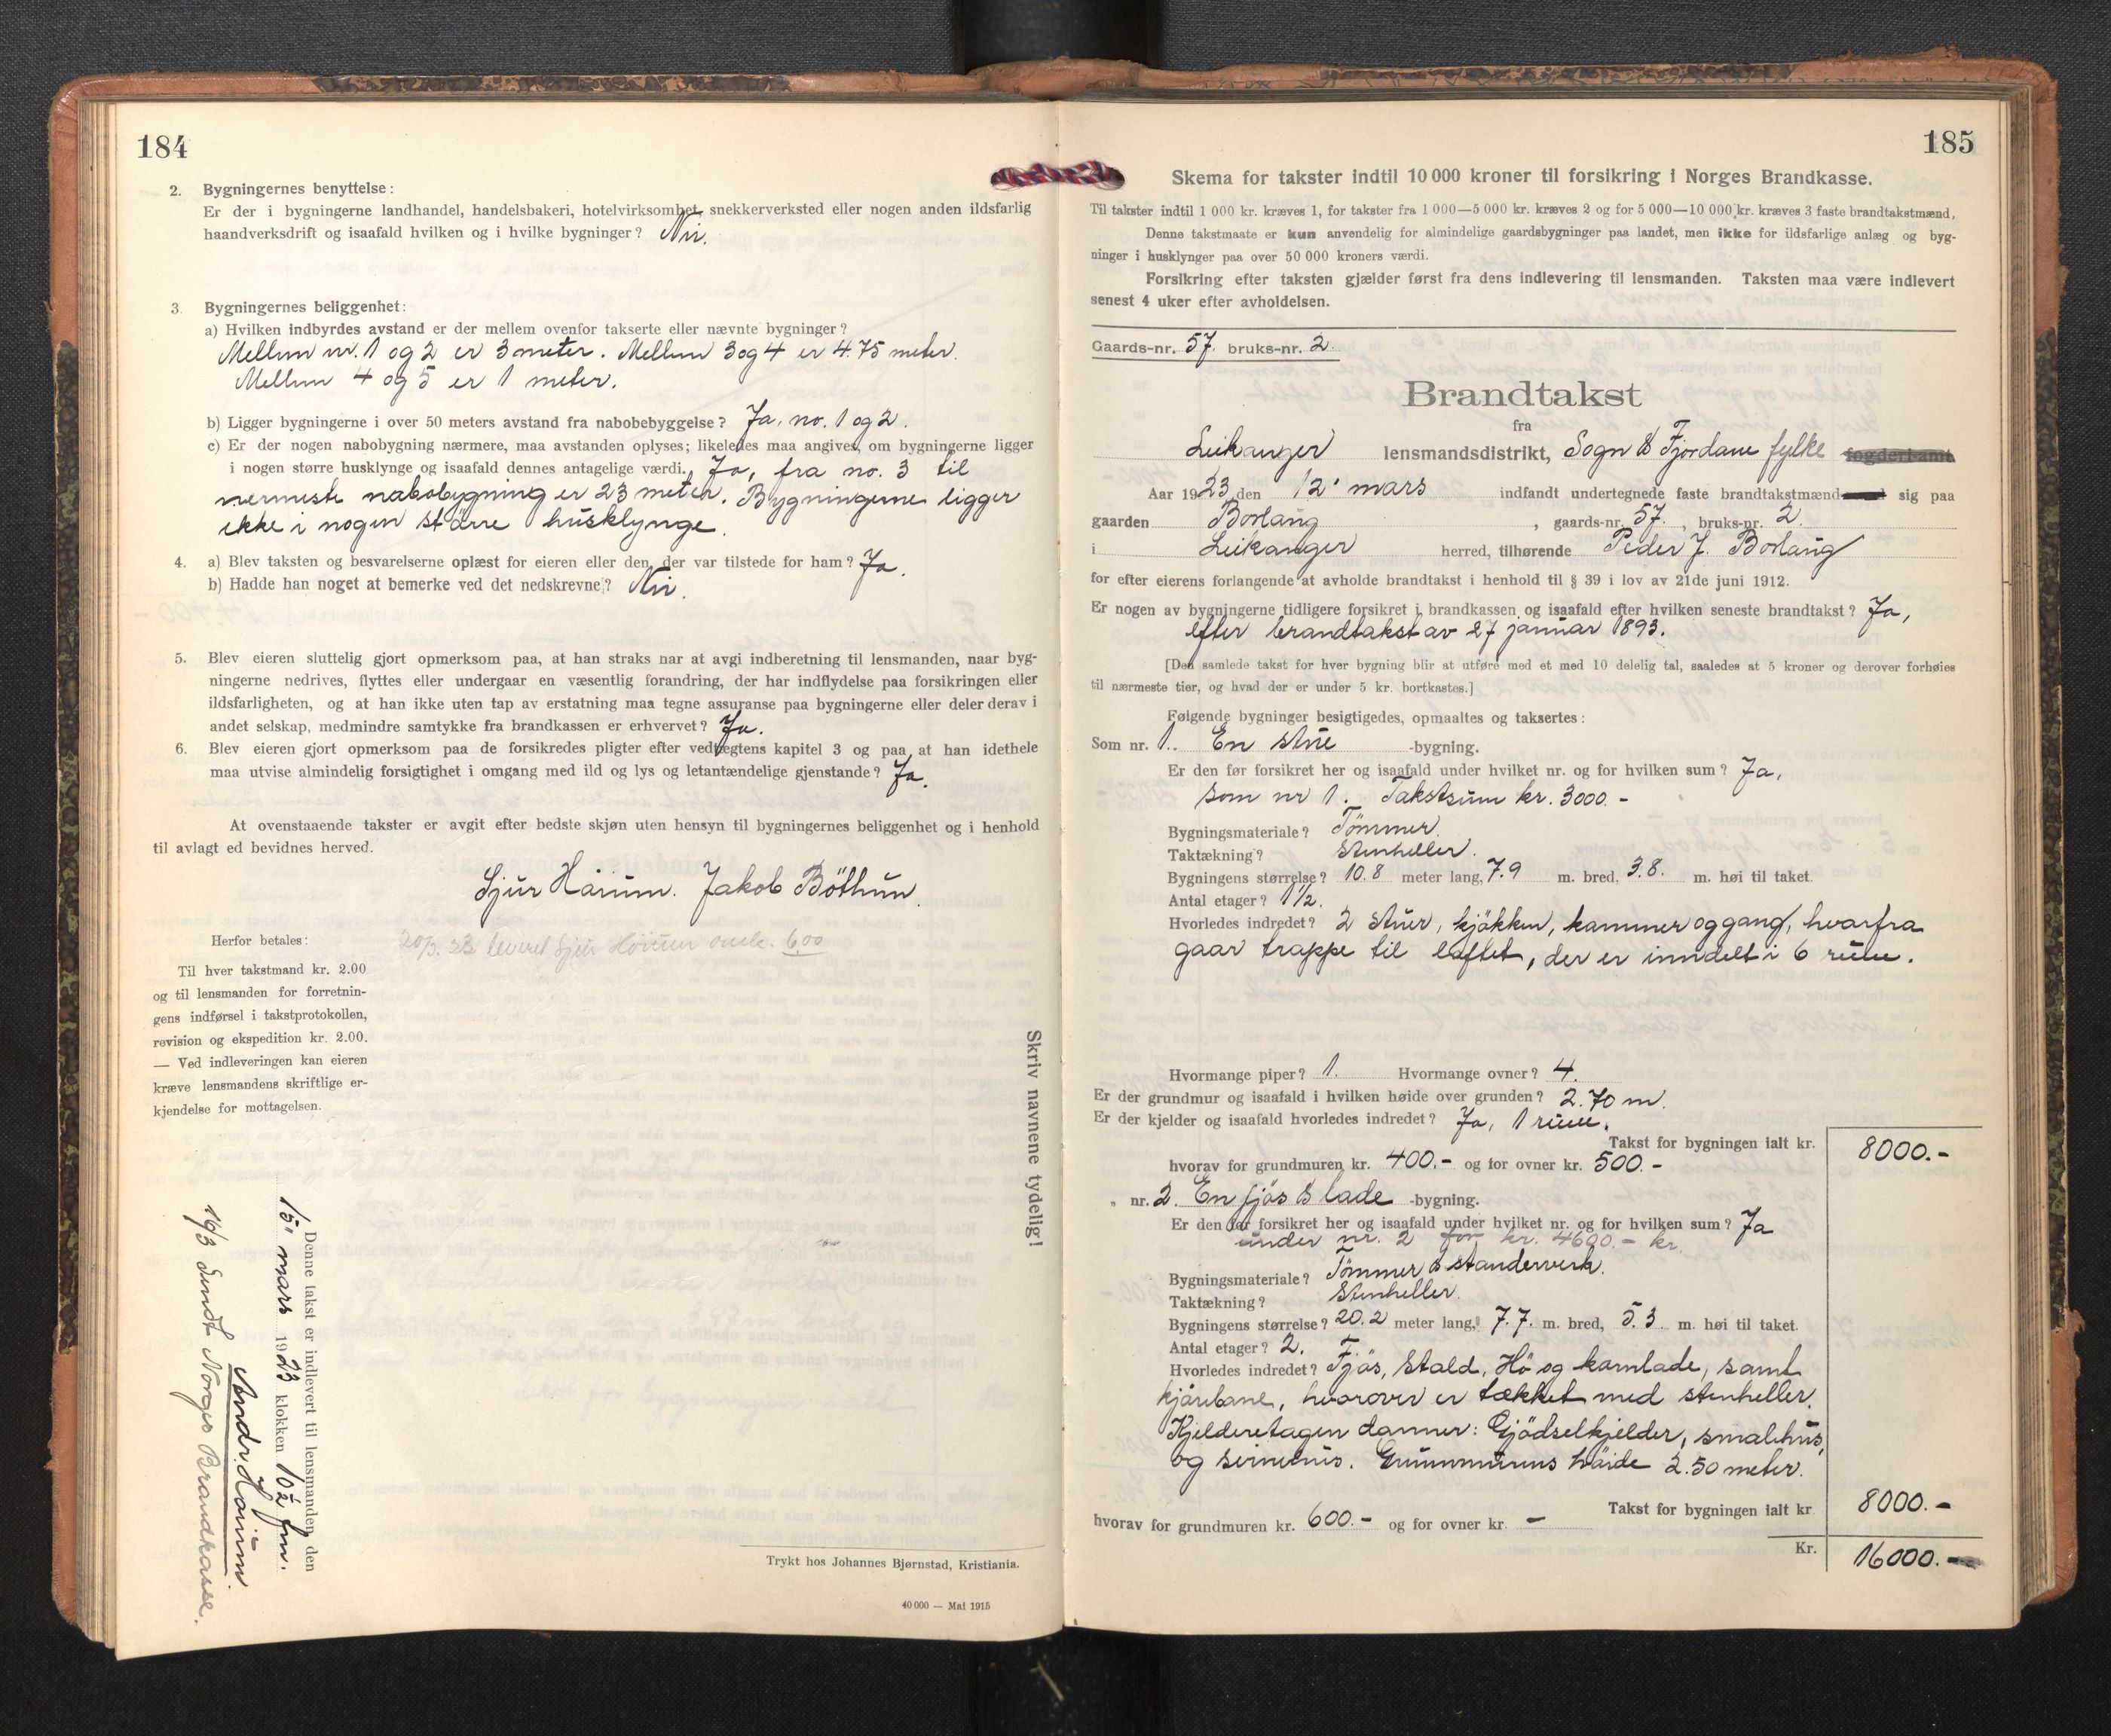 184
2. Bygningernes benyttelse:
Er der i bygningerne landhandel, handelsbakeri, hotelvirksomhet, snekkerverksted eller nogen anden ildsfarlig
haandverksdrift og isaafald hvilken og i hvilke bygninger? Nei.
3. Bygningernes beliggenhet:
a) Hvilken indbyrdes avstand er der mellem ovenfor takserte eller nævnte bygninger?
Mellem nr. 1 og 2 er 3 meter. Mellem 3 og 4 er 4.75 meter.
Mellem 4 og 5 er 1 meter.
b) Ligger bygningerne i over 50 meters avstand fra nabobebyggelse? Ja, no. 1 og 2.
c) Er der nogen nabobygning nærmere, maa avstanden oplyses; likeledes maa angives, om bygningerne ligger
i nogen større husklynge og isaafald dennes antagelige værdi. Ja, fra no. 3 til
nermeste nabobygning er 23 meter. Bygningerne ligger
ikke i nogen større husklynge.
4. a) Blev taksten og besvarelserne oplæst for eieren eller den, der var tilstede for ham? Ja.
b) Hadde han noget at bemerke ved det nedskrevne? Nei.
5. Blev eieren sluttelig gjort opmerksom paa, at han straks har at avgi indberetning til lensmanden, naar byg-
ningerne nedrives, flyttes eller undergaar en væsentlig forandring, der har indflydelse paa forsikringen eller
ildsfarligheten, og at han ikke uten tap av erstatning maa tegne assuranse paa bygningerne eller deler derav i
andet selskap, medmindre samtykke fra brandkassen er erhvervet? Ja.
6. Blev eieren gjort opmerksom paa de forsikredes pligter efter vedtægtens kapitel 3 og paa at han idethele
maa utvise almindelig forsigtighet i omgang med ild og lys og letantændelige gjenstande? Ja.
At ovenstaaende takster er avgit efter bedste skjøn uten hensyn til bygningernes beliggenhet og i henhold
til avlagt ed bevidnes herved.
Sjur Häium. Jakob Böthun.
Herfor betales:
20/3. 23 leveret Sjur 6.00
Til hver takstmand kr. 2.00
og til lensmanden for forretnin-
gens indførsel i takstprotokollen,
revision og ekspedition kr. 2.00.
— Ved indleveringen kan eieren
kræve lensmandens skriftlige er-
kjendelse for mottagelsen.
Skriv navnene tydelig!
Denne takst er indlevert til lensmanden den
15' mars 1923 klokken 10½ fm.
Andr. Høium.
16/3 Sendt Norges Brandkasse.
Trykt hos Johannes Bjørnstad, Kristiania.
40 000 — Mai 1915
185
Skema for takster indtil 10 000 kroner til forsikring i Norges Brandkasse.
Til takster indtil 1 000 kr. kræves 1, for takster fra 1 000—5 000 kr. kræves 2 og for 5 000—10 000 kr. kræves 3 faste brandtakstmænd.
Denne takstmaate er kun anvendelig for almindelige gaardsbygninger paa landet, men ikke for ildsfarlige anlæg og byg-
ninger i husklynger paa over 50 000 kroners værdi.
Forsikring efter taksten gjælder først fra dens indlevering til lensmanden. Taksten maa være indlevert
senest 4 uker efter avholdelsen.
Gaards-nr. 57. bruks-nr. 2.
Brandtakst
fra
Leikanger lensmandsdistrikt, Sogn & Fjordane fylke fogderi amt
Aar 1923 den 12' mars indfandt undertegnede faste brandtakstmænd sig paa
gaarden Borlaug, gaards-nr. 57., bruks-nr. 2.
i Leikanger herred, tilhørende Peder J. Borlaug
for efter eierens forlangende at avholde brandtakst i henhold til § 39 i lov av 21de juni 1912.
Er nogen av bygningerne tidligere forsikret i brandkassen og isaafald efter hvilken seneste brandtakst? Ja,
efter brandtakst av 27 januar 1893.
[Den samlede takst for hver bygning blir at utføre med et med 10 delelig tal, saaledes at 5 kroner og derover forhøies
til nærmeste tier, og hvad der er under 5 kr. bortkastes.]
Følgende bygninger besigtigedes, opmaaltes og taksertes:
Som nr. 1. En stue -bygning.
Er den før forsikret her og isaafald under hvilket nr. og for hvilken sum? Ja,
som nr 1. Takstsum kr. 3000.-
Bygningsmateriale? Tömmer.
Taktækning? Stenheller.
Bygningens størrelse? 10.8 meter lang, 7.9 m. bred, 3.8. m. høi til taket.
Antal etager? 1½.
Hvorledes indredet? 2 stuer, kjökken, kammer og gang, hvorfra
gaar trappe til loftet, der er inndelt i 6 rum.
Hvormange piper? 1. Hvormange ovner? 4.
Er der grundmur og isaafald i hvilken høide over grunden? 2.70 m.
Er der kjelder og isaafald hvorledes indredet? Ja, 1 rum.
Takst for bygningen ialt kr. 8000.-
hvorav for grundmuren kr. 400.- og for ovner kr. 500.-
" nr. 2. En fjös & lade -bygning.
Er den før forsikret her og isaafald under hvilket nr. og for hvilken sum? Ja
under nr. 2 for kr. 4600.- kr.
Bygningsmateriale? Tömmer & standerverk.
Taktækning? Stenheller.
Bygningens størrelse? 20.2 meter lang, 7.7. m. bred, 5.3 m. høi til taket.
Antal etager? 2.
Hvorledes indredet? Fjös, Stald, Hö og kornlade, samt
kjørebane, hvorover er tækket med stenheller.
Kjelderetagen danner: Gjödselkjelder, smalehus,
og svinehus. Grunnmurens höide 2.50 meter.
Takst for bygningen ialt kr 8000.-
hvorav for grundmuren kr. 600.- og for ovner kr. -
Kr. 16000.-